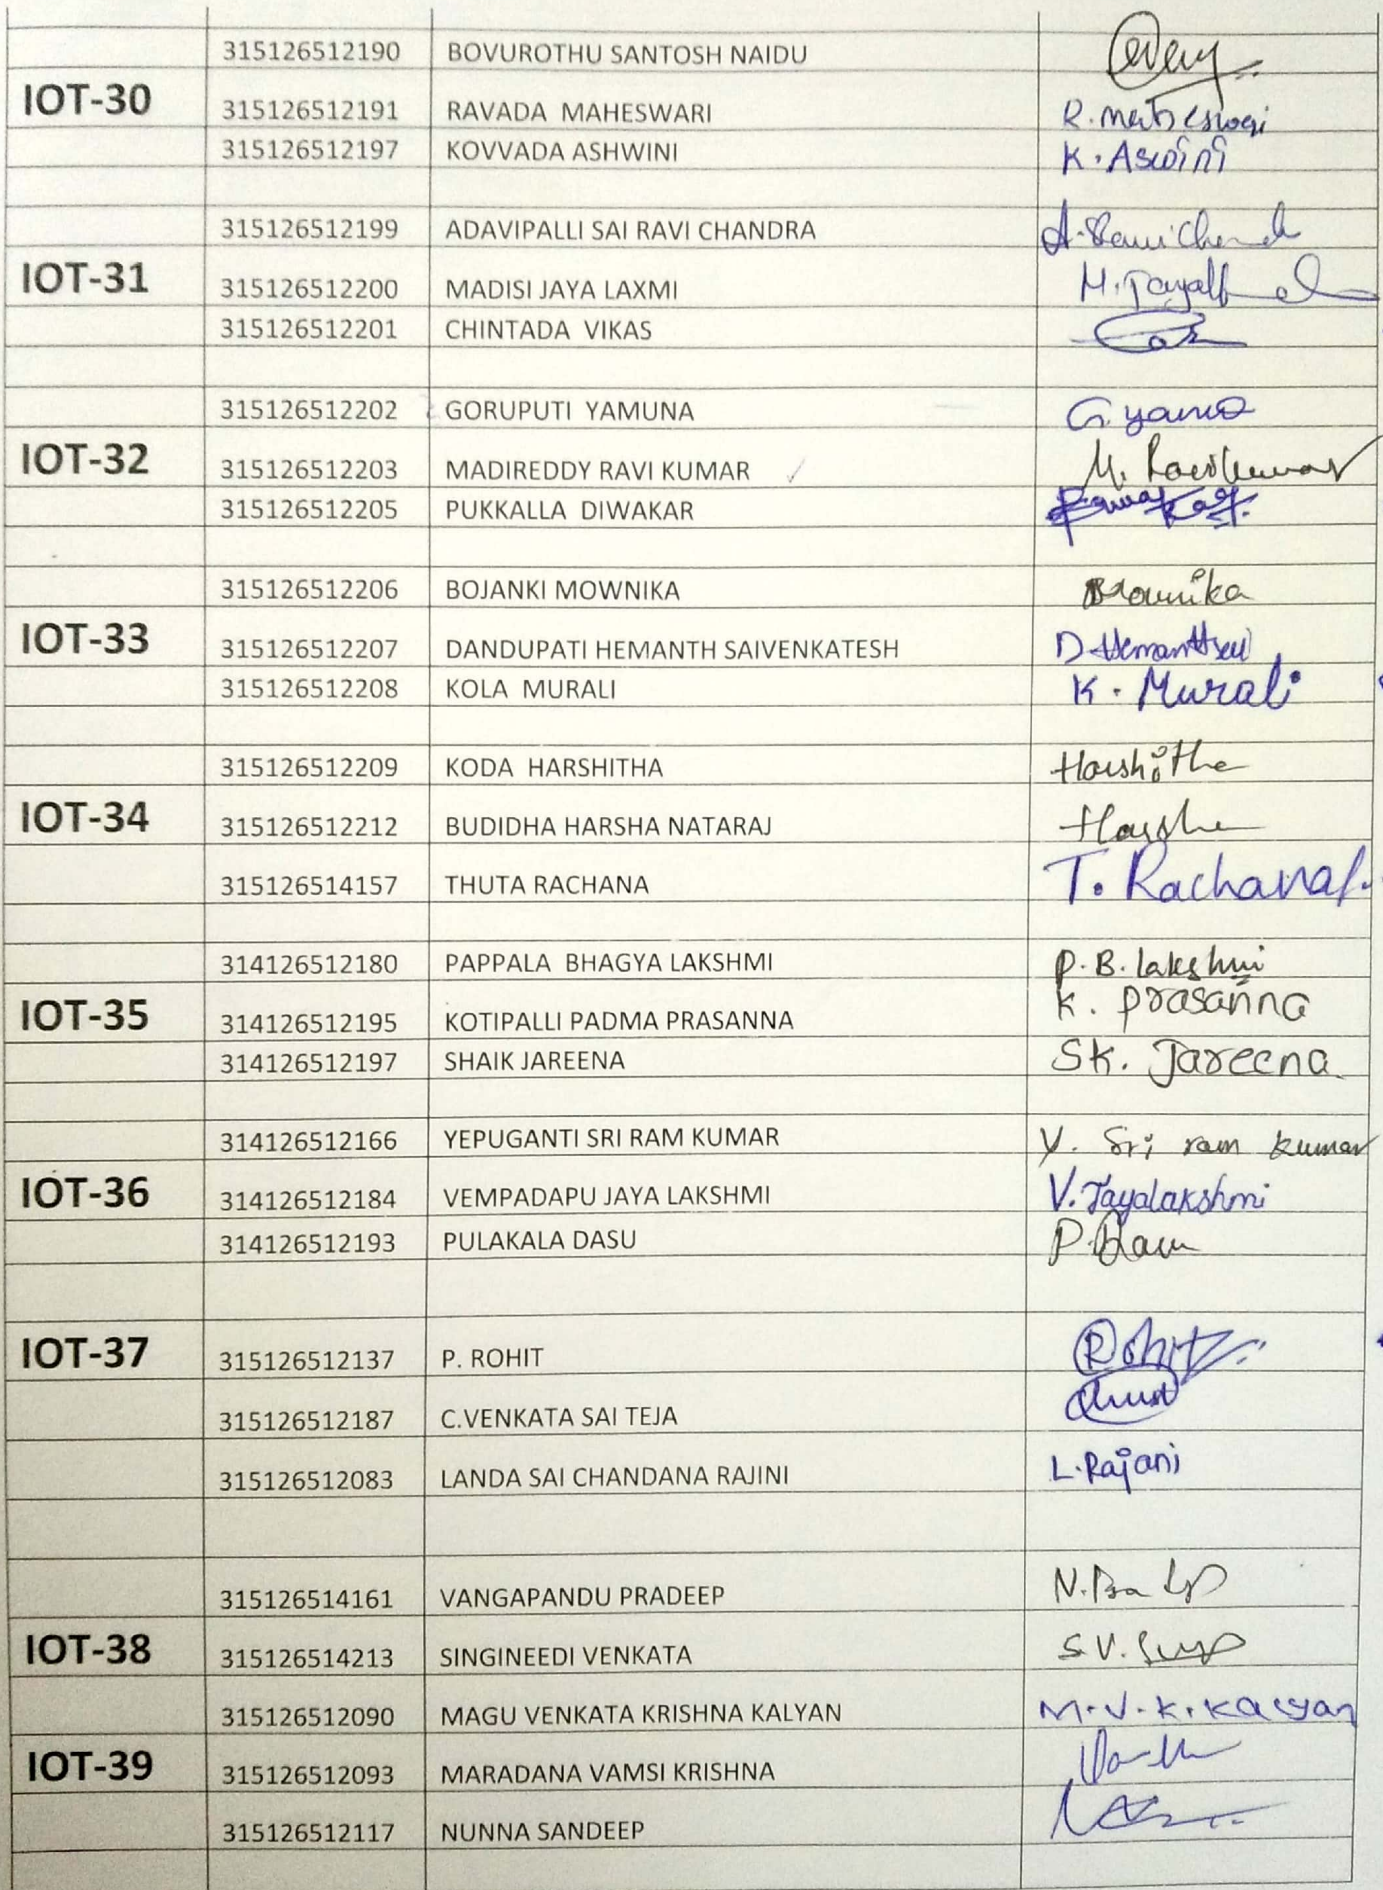 315126512190 BOVUROTHU SANTOSH NAIDU
IOT-30 315126512191 RAVADA MAHESWARI R.
315126512197 KOVVADA ASHWINI K. Aswini
315126512199 ADAVIPALLI SAI RAVI CHANDRA
IOT-31 315126512200 MADISI JAYA LAXMI
315126512201 CHINTADA VIKAS
315126512202 GORUPUTI YAMUNA G.
IOT-32 315126512203 MADIREDDY RAVI KUMAR M. Ravikumar
315126512205 PUKKALLA DIWAKAR
315126512206 BOJANKI MOWNIKA
IOT-33 315126512207 DANDUPATI HEMANTH SAIVENKATESH D. Hemanthsai
315126512208 KOLA MURALI K. Murali
315126512209 KODA HARSHITHA Harshitha
IOT-34 315126512212 BUDIDHA HARSHA NATARAJ Harsha
315126514157 THUTA RACHANA T. Rachana
314126512180 PAPPALA BHAGYA LAKSHMI P. B. Lakshmi
IOT-35 314126512195 KOTIPALLI PADMA PRASANNA K. Prasanna
314126512197 SHAIK JAREENA SK. Jareena
314126512166 YEPUGANTI SRI RAM KUMAR Y. Sri ram kumar
IOT-36 314126512184 VEMPADAPU JAYA LAKSHMI V. Jayalakshmi
314126512193 PULAKALA DASU
IOT-37 315126512137 P. ROHIT Rohit
315126512187 C.VENKATA SAI TEJA
315126512083 LANDA SAI CHANDANA RAJINI L. Rajani
315126514161 VANGAPANDU PRADEEP
IOT-38 315126514213 SINGINEEDI VENKATA S.V.
315126512090 MAGU VENKATA KRISHNA KALYAN M.V.K.Kalyan
IOT-39 315126512093 MARADANA VAMSI KRISHNA
315126512117 NUNNA SANDEEP